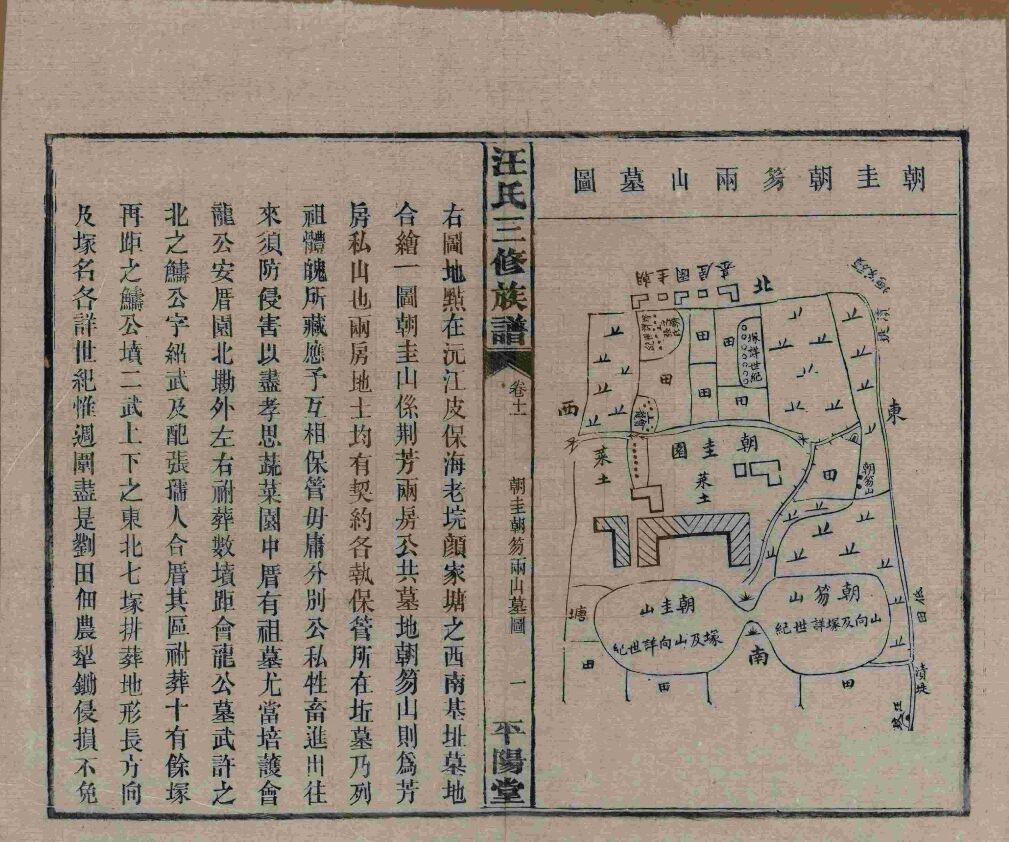 朝圭朝笏兩山墓圖
北
東
西
南
朝圭園
菜土
菜土
田
田
田
田
田
田
塚詳世紀
朝笏山
朝圭山
塚及山向詳世紀
朝笏山
山向及塚詳世紀
塘
田
田
田
汪氏三修族譜
卷十一
朝圭朝笏兩山墓圖
一
平陽堂
右圖地點在沅江皮保海老垸顏家塘之西南基址墓地
合繪一圖朝圭山係荆芳兩房公共墓地朝笏山則爲芳
房私山也兩房地土均有契約各執保管所在坵墓乃列
祖體魄所藏應予互相保管毋庸分別公私牲畜進出往
來須防侵害以盡孝思蔬菜園中厝有祖墓尤當培護會
龍公安厝園北墈外左右祔葬數墳距會龍公墓武許之
北之鱅公字紹武及配張孺人合厝其區祔葬十有餘塚
再距之鱅公墳二武上下之東北七塚排葬地形長方向
及塚名各詳世紀惟週圍盡是劉田佃農犁鋤侵損不免